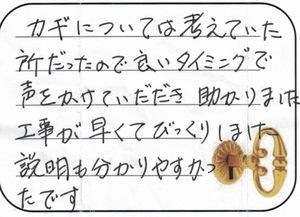 カギについては考えていた
所だったので良いタイミングで
声をかけていただき助かりました
工事が早くてびっくりしました
説明も分かりやすかっ
たです